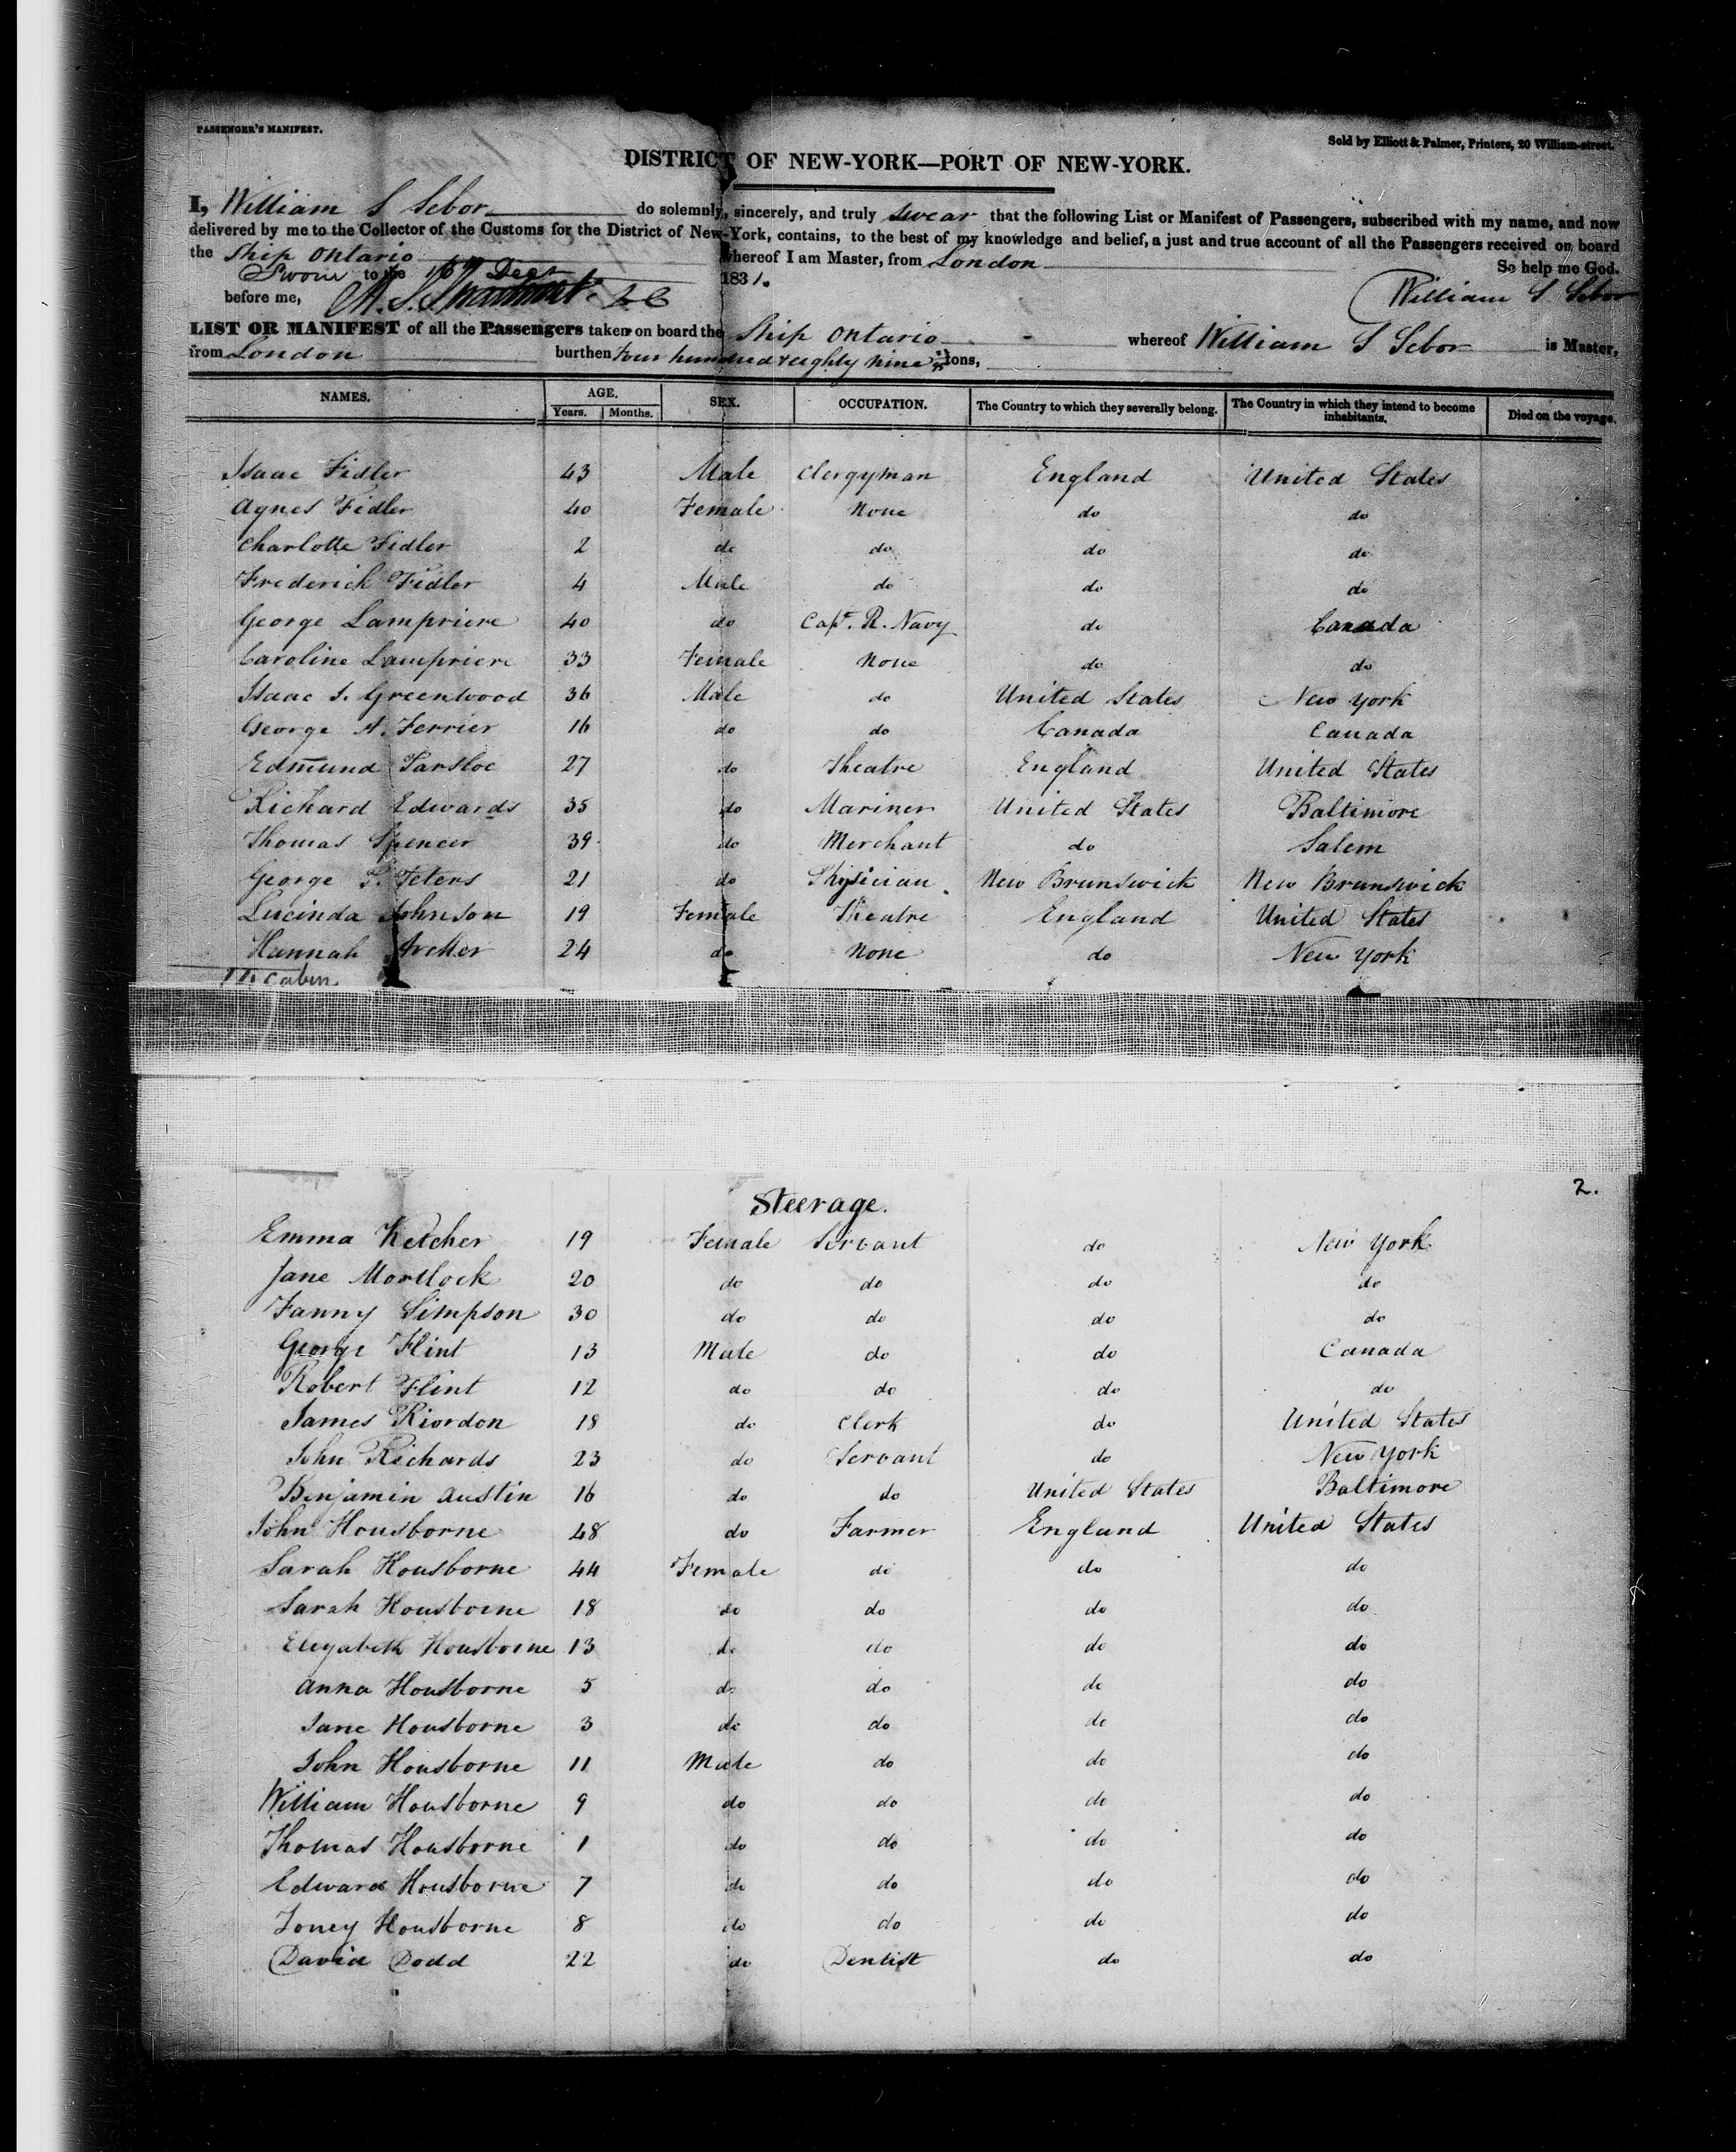 PASSENGER'S MANIFEST.
Sold by Elliott & Palmer, Printers, 20 William-street.
DISTRICT OF NEW-YORK—PORT OF NEW-YORK.
I, William S Sebor do solemnly, sincerely, and truly swear that the following List or Manifest of Passengers, subscribed with my name, and now
delivered by me to the Collector of the Customs for the District of New-York, contains, to the best of my knowledge and belief, a just and true account of all the Passengers received on board
the Ship Ontario whereof I am Master, from London
So help me God.
Sworn to the 16th Decr 1831.
before me,
William S Sebor
LIST OR MANIFEST of all the Passengers taken on board the Ship Ontario whereof William S Sebor is Master,
from London burthen Four hundred & eighty nine tons,
NAMES. AGE. SEX. OCCUPATION. The Country to which they severally belong. The Country in which they intend to become inhabitants. Died on the voyage.
Years. Months.
Isaac Fidler 43 Male Clergyman England United States
Agnes Fidler 40 Female None do do
Charlotte Fidler 2 do do do do
Frederick Fidler 4 Male do do do
George Lampriere 40 do Capt. R. Navy do Canada
Caroline Lampriere 33 Female None do do
Isaac J. Greenwood 36 Male do United States New York
George A. Ferrier 16 do do Canada Canada
Edmund Parsloe 27 do Theatre England United States
Richard Edwards 35 do Mariner United States Baltimore
Thomas Spencer 39 do Merchant do Salem
George P. Peters 21 do Physician New Brunswick New Brunswick
Lucinda Johnson 19 Female Theatre England United States
Hannah 24 do None do New York
Cabin
2.
Steerage.
Emma Ketcher 19 Female Servant do New York
Jane Mortlock 20 do do do do
Fanny Simpson 30 do do do do
George Flint 13 Male do do Canada
Robert Flint 12 do do do do
James Riordon 18 do Clerk do United States
John Richards 23 do Servant do New York
Benjamin Austin 16 do do United States Baltimore
John Housborne 48 do Farmer England United States
Sarah Housborne 44 Female do do do
Sarah Housborne 18 do do do do
Elizabeth Housborne 13 do do do do
Anna Housborne 5 do do do do
Jane Housborne 3 do do do do
John Housborne 11 Male do do do
William Housborne 9 do do do do
Thomas Housborne 1 do do do do
Edward Housborne 7 do do do do
Toney Housborne 8 do do do do
David Dodd 22 do Dentist do do